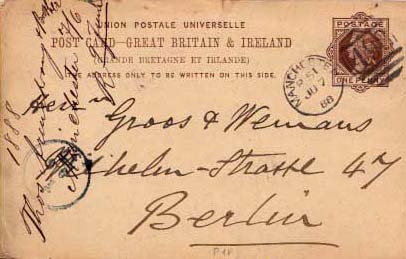 UNION POSTALE UNIVERSELLE
POST CARD–GREAT BRITAIN & IRELAND
(GRANDE BRETAGNE ET IRLANDE)
THE ADDRESS ONLY TO BE WRITTEN ON THIS SIDE.
POSTAGE
ONE PENNY
MANCHESTER
JU 7
88
Herrn
Groos &
Wilhelm-Strasse 47
Berlin
1888
Thos.
Manchester 7/6
P 18